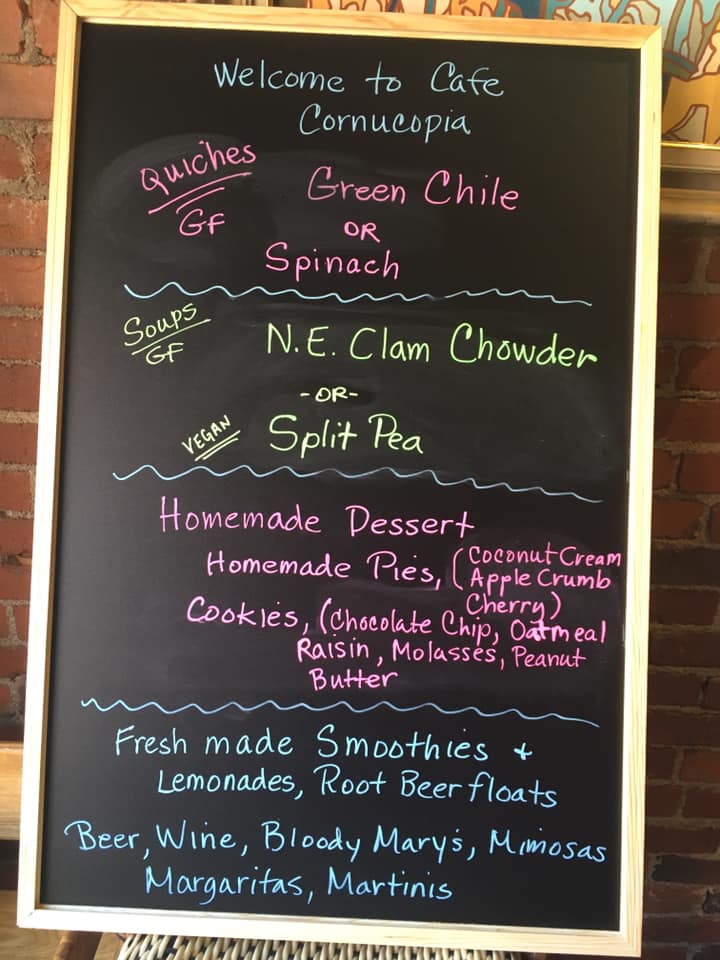 Welcome to Cafe
Cornucopia
Quiches
GF
Green Chile
OR
Spinach
Soups
GF
N.E. Clam Chowder
-OR-
VEGAN
Split Pea
Homemade Dessert
Homemade Pies, (Coconut Cream
Apple Crumb
Cherry)
Cookies, (Chocolate Chip, Oatmeal
Raisin, Molasses, Peanut
Butter
Fresh made Smoothies +
Lemonades, Root Beer floats
Beer, Wine, Bloody Mary's, Mimosas
Margaritas, Martinis